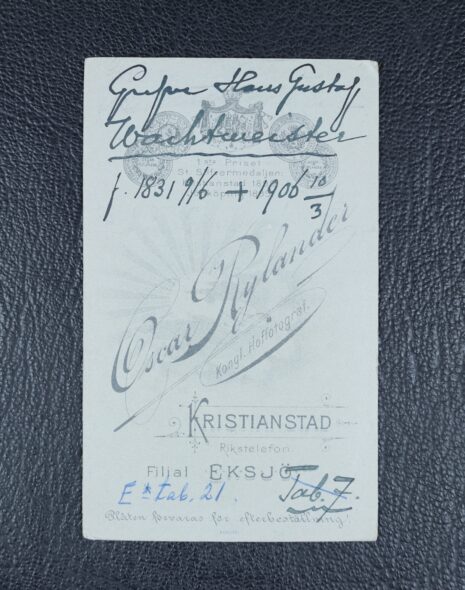 Grefve Hans Gustaf
Wachtmeister
1sta Priset
St. Silfvermedaljen:
f. 1831 9/6 + 1906 10/3
Oscar Rylander
Kongl. Hoffotograf.
KRISTIANSTAD
Rikstelefon
Filial EKSJÖ
E* Tab. 21. Tab. 7.
Plåten förvaras för efterbeställning.